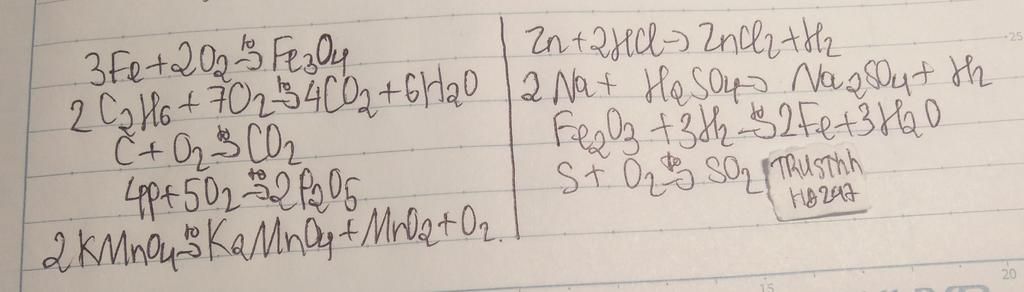 3Fe + 2O2 t°→ Fe3O4
2C2H6 + 7O2 t°→ 4CO2 + 6H2O
C + O2 t°→ CO2
4p + 5O2 t°→ 2P2O5
2KMnO4 t°→ K2MnO4 + MnO2 + O2
Zn + 2HCl → ZnCl2 + H2
2Na + H2SO4 → Na2SO4 + H2
Fe2O3 + 3H2 t°→ 2Fe + 3H2O
S + O2 t°→ SO2
TRUSThh
HD247
25
15
20